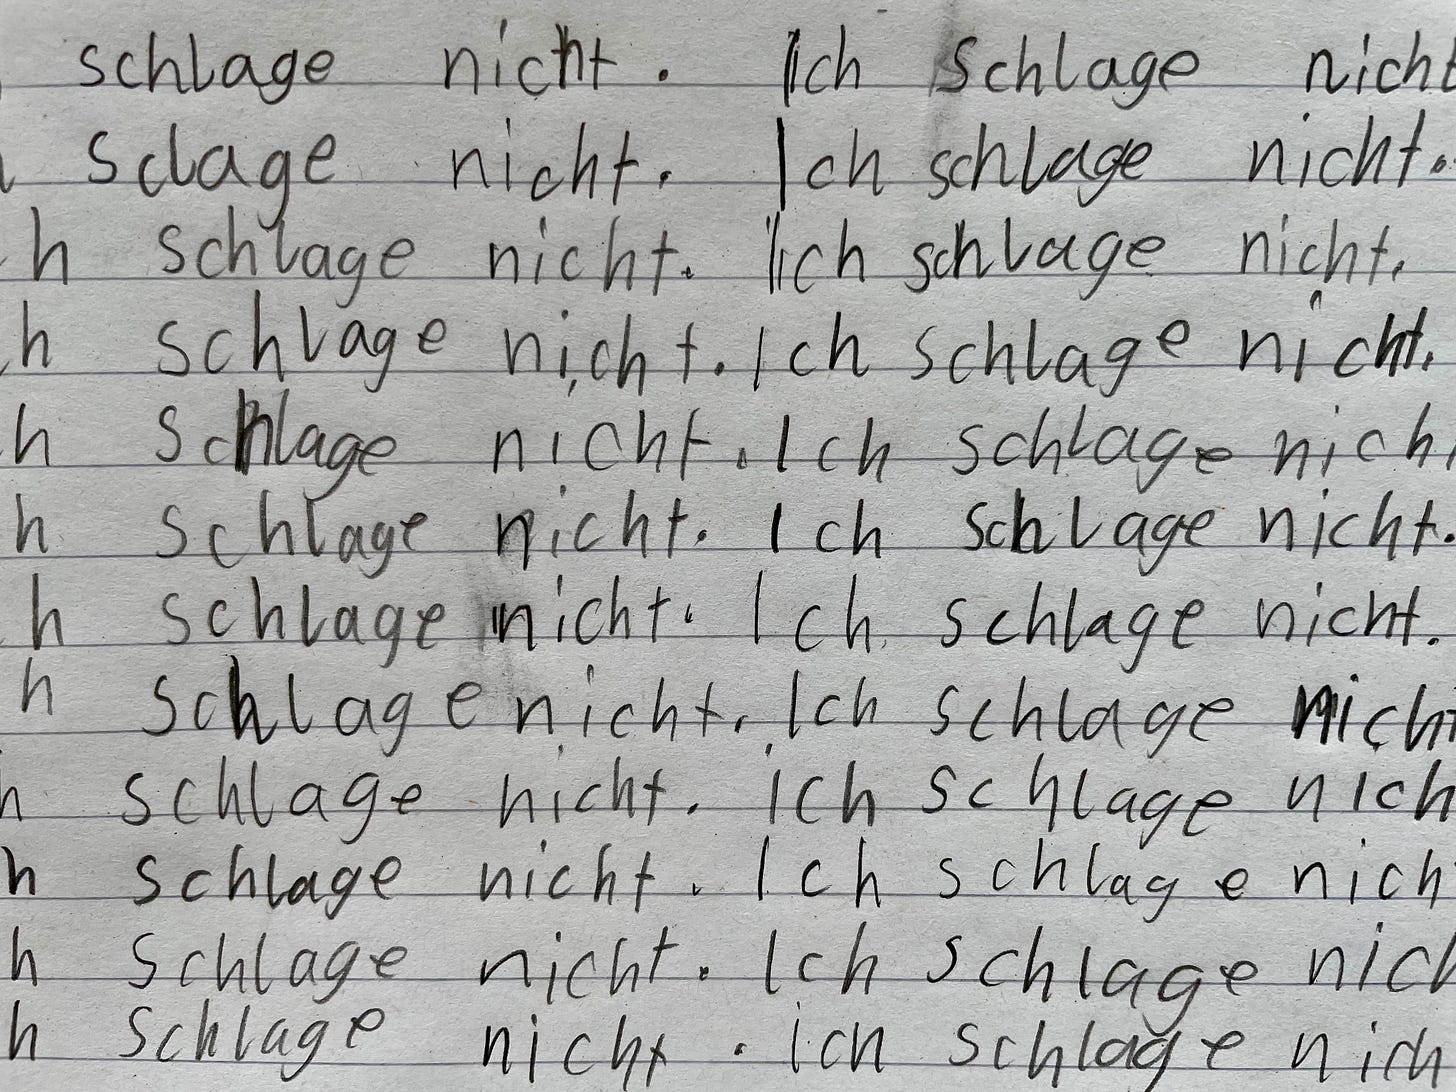 schlage nicht. Ich schlage nicht
h sclage nicht. Ich schlage nicht.
ch schlage nicht. Ich schlage nicht.
ch schlage nicht. Ich schlage nicht.
h schlage nicht. Ich schlage nich
h schlage nicht. Ich schlage nicht.
ch schlage nicht. Ich schlage nicht.
h schlage nicht. Ich schlage nicht
h schlage nicht. ich schlage nich
h schlage nicht. Ich schlage nich
h schlage nicht. Ich schlage nich
h schlage nicht. ich schlage nich